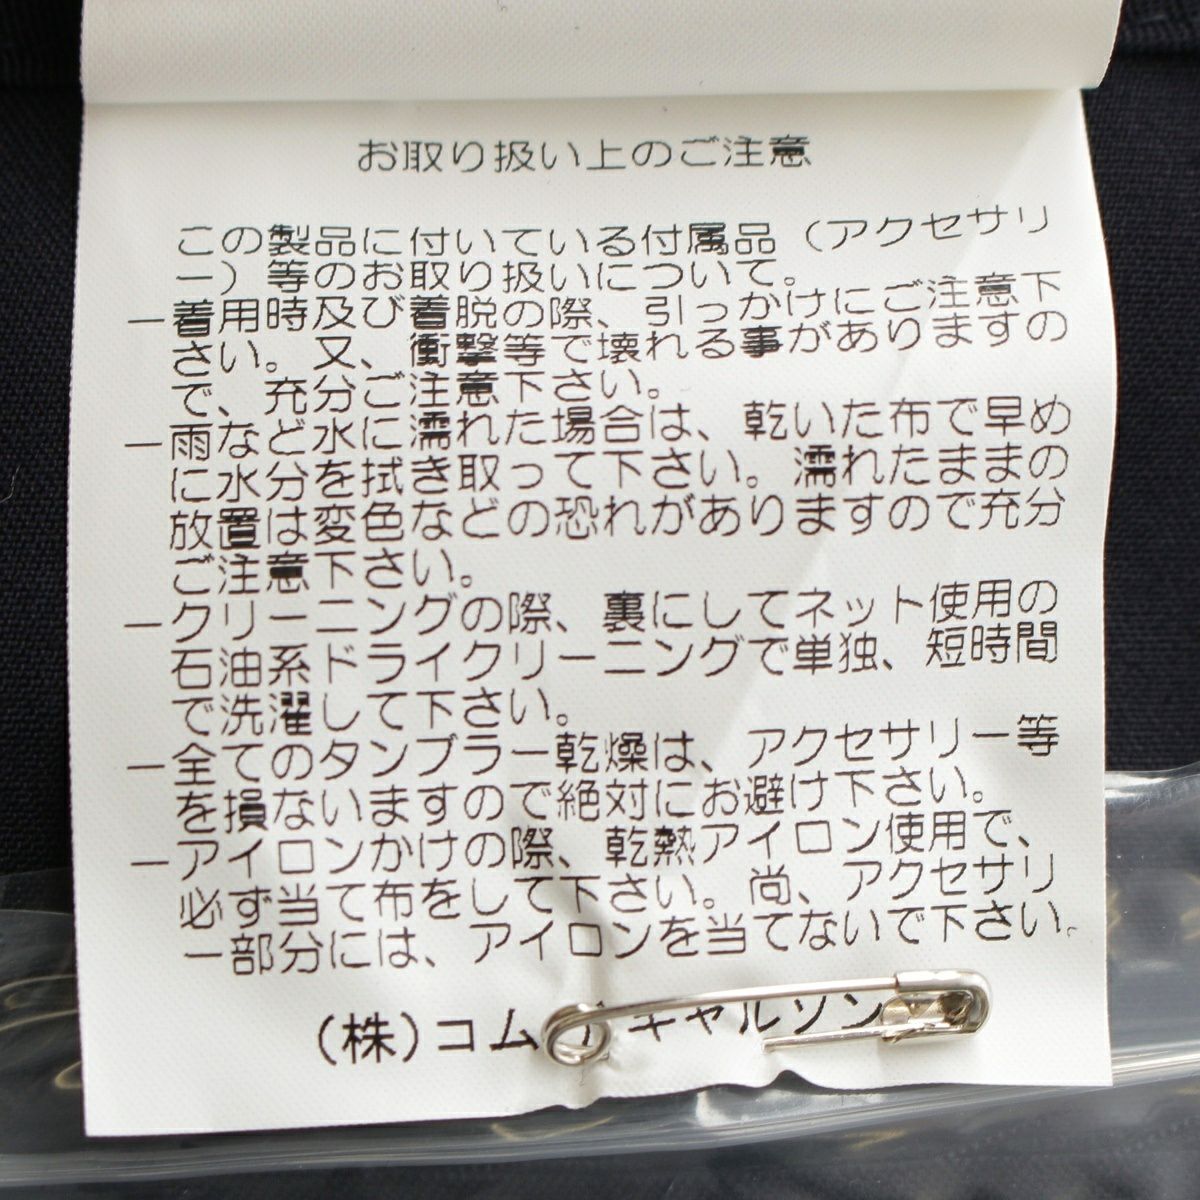 お取り扱い上のご注意
この製品に付いている付属品（アクセサリ
ー）等のお取り扱いについて。
－着用時及び着脱の際、引っかけにご注意下
さい。又、衝撃等で壊れる事がありますの
で、充分ご注意下さい。
－雨など水に濡れた場合は、乾いた布で早め
に水分を拭き取って下さい。濡れたままの
放置は変色などの恐れがありますので充分
ご注意下さい。
－クリーニングの際、裏にしてネット使用の
石油系ドライクリーニングで単独、短時間
で洗濯して下さい。
－全てのタンブラー乾燥は、アクセサリー等
を損ないますので絶対にお避け下さい。
－アイロンかけの際、乾熱アイロン使用で、
必ず当て布をして下さい。尚、アクセサリ
ー部分には、アイロンを当てないで下さい。
(株)コム ギャルソン